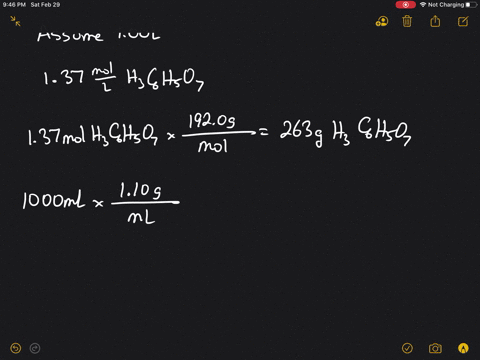 9:46 PM Sat Feb 29
Not Charging
Assume 1.00L
1.37 mol/L H3C6H5O7
1.37mol H3C6H5O7 × 192.0g/mol = 263g H3C6H5O7
1000mL × 1.10g/mL